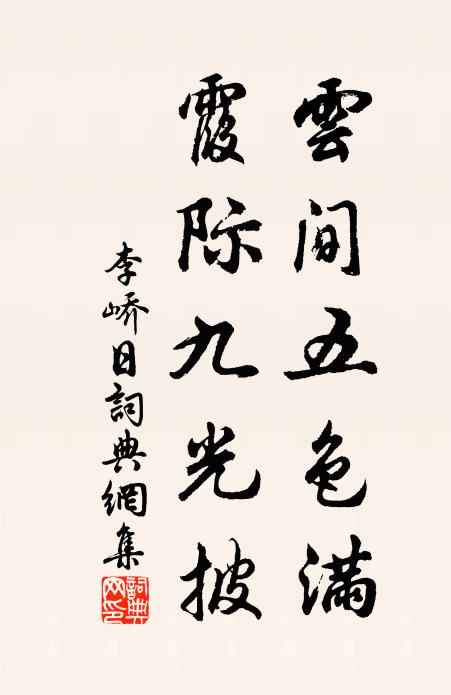 雲间五色滿
霞际九光披
李峤日詞典網集
詞典网印